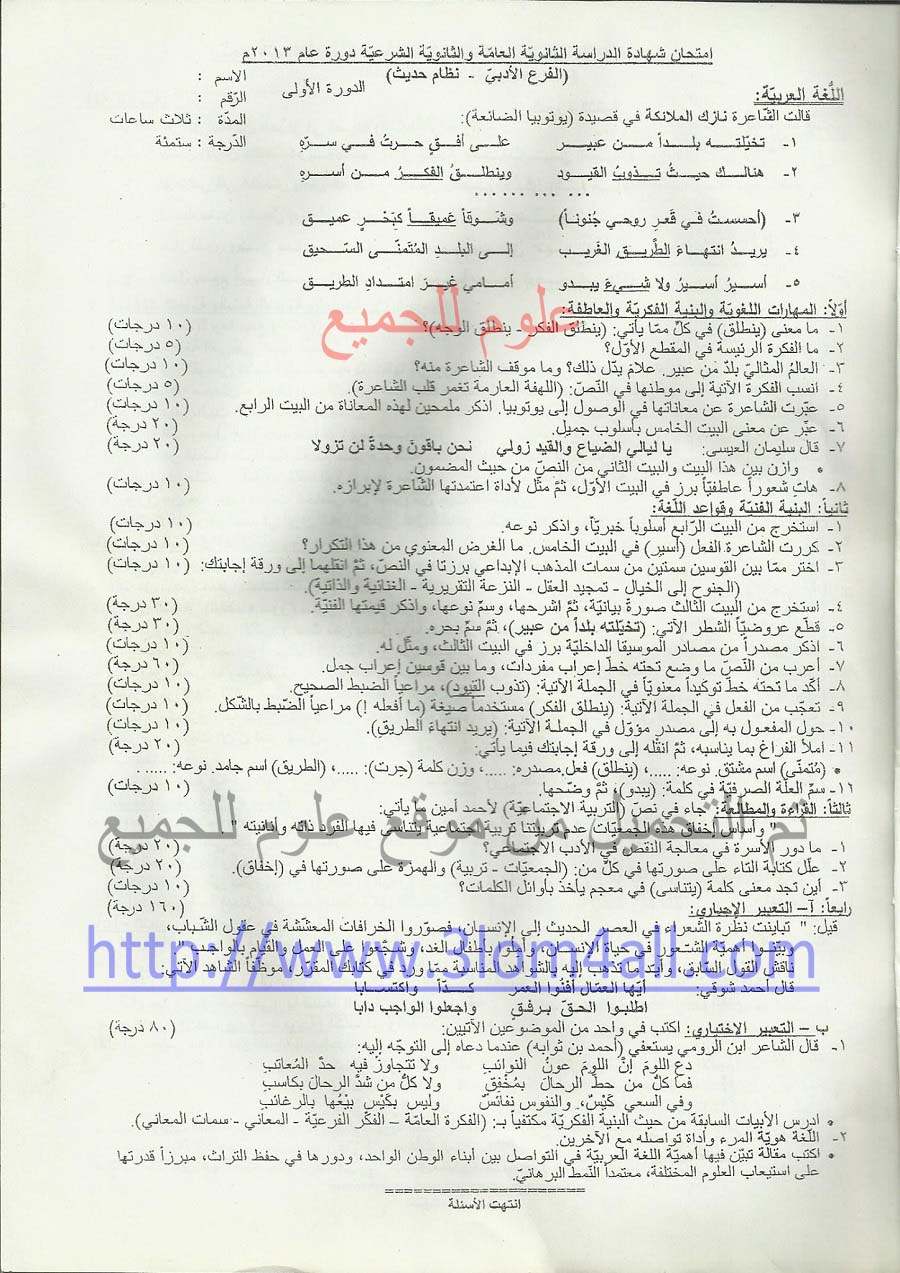 امتحان شهادة الدراسة الثانويّة العامّة والثانويّة الشرعيّة دورة عام ٢٠١٣م
(الفرع الأدبيّ - نظام حديث)
الاسم :
الدورة الأولى
الرّقم :
اللّغة العربيّة:
المدّة : ثلاث ساعات
قالت الشّاعرة نازك الملائكة في قصيدة (يوتوبيا الضائعة):
الدّرجة : ستمئة
١- تخيّلته بلداً من عبير على أفقٍ حرتُ في سرّهِ
٢- هنالك حيثُ تذوبُ القيود وينطلقُ الفكرُ من أسرهِ
... ... ... ...
٣- (أحسستُ في قعرِ روحي جُنوناً) وشوقاً عميقاً كبَخرٍ عميق
٤- يريدُ انتهاءَ الطَّريقِ الغَريب إلى البلدِ المُتمنّى السّحيق
٥- أسيرُ أسيرُ ولا شيءَ يبدو أمامي غيرَ امتدادِ الطريق
أوّلاً: المهارات اللغويّة والبنية الفكريّة والعاطفة:
١- ما معنى (ينطلق) في كلّ ممّا يأتي: (ينطلق الفكر - ينطلق الوجه)؟ (١٠ درجات)
٢- ما الفكرة الرئيسة في المقطع الأوّل؟ (٥ درجات)
٣- العالمُ المثاليّ بلدٌ من عبير. علامَ يدّل ذلك؟ وما موقف الشاعرة منه؟ (١٠ درجات)
٤- انسب الفكرة الآتية إلى موطنها في النّصّ: (اللهفة العارمة تغمر قلب الشاعرة). (٥ درجات)
٥- عبّرت الشاعرة عن معاناتها في الوصول إلى يوتوبيا. اذكر ملمحين لهذه المعاناة من البيت الرابع. (١٠ درجات)
٦- عبّر عن معنى البيت الخامس بأسلوب جميل. (٢٠ درجة)
٧- قال سليمان العيسى: يا ليالي الضياع والقيد زولي نحن باقونَ وحدةً لن تزولا (٢٠ درجة)
* وازن بين هذا البيت والبيت الثاني من النصّ من حيث المضمون.
٨- هاتِ شعوراً عاطفيّاً برز في البيت الأوّل، ثمّ مثّل لأداة اعتمدتها الشّاعرة لإبرازه. (١٠ درجات)
ثانياً: البنية الفنيّة وقواعد اللّغة:
١- استخرج من البيت الرّابع أسلوباً خبريّاً، واذكر نوعه. (١٠ درجات)
٢- كررت الشاعرة الفعل (أسير) في البيت الخامس. ما الغرض المعنوي من هذا التكرار؟ (١٠ درجات)
٣- اختر ممّا بين القوسين سمتين من سمات المذهب الإبداعي برزتا في النصّ، ثمّ انقلهما إلى ورقة إجابتك: (١٠ درجات)
(الجنوح إلى الخيال - تمجيد العقل - النزعة التقريرية - الغنائية والذاتية).
٤- استخرج من البيت الثالث صورةً بيانيّة، ثمّ اشرحها، وسمِّ نوعها، واذكر قيمتها الفنيّة. (٣٠ درجة)
٥- قطّع عروضيّاً الشطر الآتي: (تخيّلته بلداً من عبير)، ثمّ سمِّ بحره. (٣٠ درجة)
٦- اذكر مصدراً من مصادر الموسيقا الداخليّة برز في البيت الثالث، ومثّل له. (١٠ درجات)
٧- أعرب من النّصّ ما وضع تحته خطّ إعراب مفردات، وما بين قوسين إعراب جمل. (٦٠ درجة)
٨- أكّد ما تحته خطّ توكيداً معنويّاً في الجملة الآتية: (تذوب القيود)، مراعياً الضبط الصحيح. (١٠ درجات)
٩- تعجّب من الفعل في الجملة الآتية: (ينطلق الفكر) مستخدماً صيغة (ما أفعله !) مراعياً الضّبط بالشّكل. (١٠ درجات)
١٠- حول المفعول به إلى مصدر مؤوّل في الجملة الآتية: (يريد انتهاءَ الطريقِ). (١٠ درجات)
١١- املأ الفراغ بما يناسبه، ثمّ انقله إلى ورقة إجابتك فيما يأتي: (٢٠ درجة)
* (مُتمنّى) اسم مشتق. نوعه: .....، (ينطلق) فعل.مصدره: .....، وزن كلمة (حِرت): .....، (الطريق) اسم جامد. نوعه: .... .
١١- سمِّ العلّة الصرفيّة في كلمة: (يبدو)، ثمّ وضّحها. (١٠ درجات)
ثالثاً: القراءة والمطالعة: جاء في نصّ (التربية الاجتماعيّة) لأحمد أمين ما يأتي:
" وأساس إخفاق هذه الجمعيّات عدم تربيتنا تربية اجتماعية يتناسى فيها الفرد ذاته وأنانيته " .
١- ما دور الأسرة في معالجة النقص في الأدب الاجتماعي؟ (٢٠ درجة)
٢- علّل كتابة التاء على صورتها في كلّ من: (الجمعيّات - تربية) والهمزة على صورتها في (إخفاق). (٢٠ درجة)
٣- أين تجد معنى كلمة (يتناسى) في معجم يأخذ بأوائل الكلمات؟ (١٠ درجات)
رابعاً: أ- التعبير الإجباري: (١٦٠ درجة)
قيل: " تباينت نظرة الشّعراء في العصر الحديث إلى الإنسان، فصوّروا الخرافات المعشّشة في عقول الشّباب،
وبيّنوا أهميّة الشّعور في حياة الإنسان، وأملوا بأطفال الغد، وشجّعوا على العمل والقيام بالواجب ".
ناقش القول السابق، وأيّد ما تذهب إليه بالشّواهد المناسبة ممّا ورد في كتابك المقرّر، موظّفاً الشاهد الآتي:
قال أحمد شوقي: أيّها العمّال أفنُوا العمر كدّاً واكتسابا
اطلبوا الحقّ برفقٍ واجعلوا الواجب دابا
ب - التعبير الاختياري: اكتب في واحد من الموضوعين الآتيين: (٨٠ درجة)
١- قال الشاعر ابن الرومي يستعفي (أحمد بن ثوابه) عندما دعاه إلى التوجّه إليه:
دعِ اللومَ إنَّ اللومَ عونُ النوائبِ ولا تتجاوزْ فيه حدَّ المُعاتبِ
فما كلُّ من حطّ الرحالَ بمُخْفِقٍ ولا كلُّ من شدَّ الرحالَ بكاسبِ
وفي السعي كَيْسٌ، والنفوس نفائسٌ وليس بكَيْسٍ بيْعُها بالرغائبِ
* ادرس الأبيات السابقة من حيث البنية الفكريّة مكتفياً بـ: (الفكرة العامّة - الفكر الفرعيّة - المعاني - سمات المعاني).
٢- اللّغة هويّة المرء وأداة تواصله مع الآخرين.
* اكتب مقالة تبيّن فيها أهميّة اللغة العربيّة في التواصل بين أبناء الوطن الواحد، ودورها في حفظ التراث، مبرزاً قدرتها
على استيعاب العلوم المختلفة، معتمداً النّمط البرهانيّ.
====================
انتهت الأسئلة
علوم للجميع
تم التحميل من موقع علوم للجميع
http://www.3lom4all.com